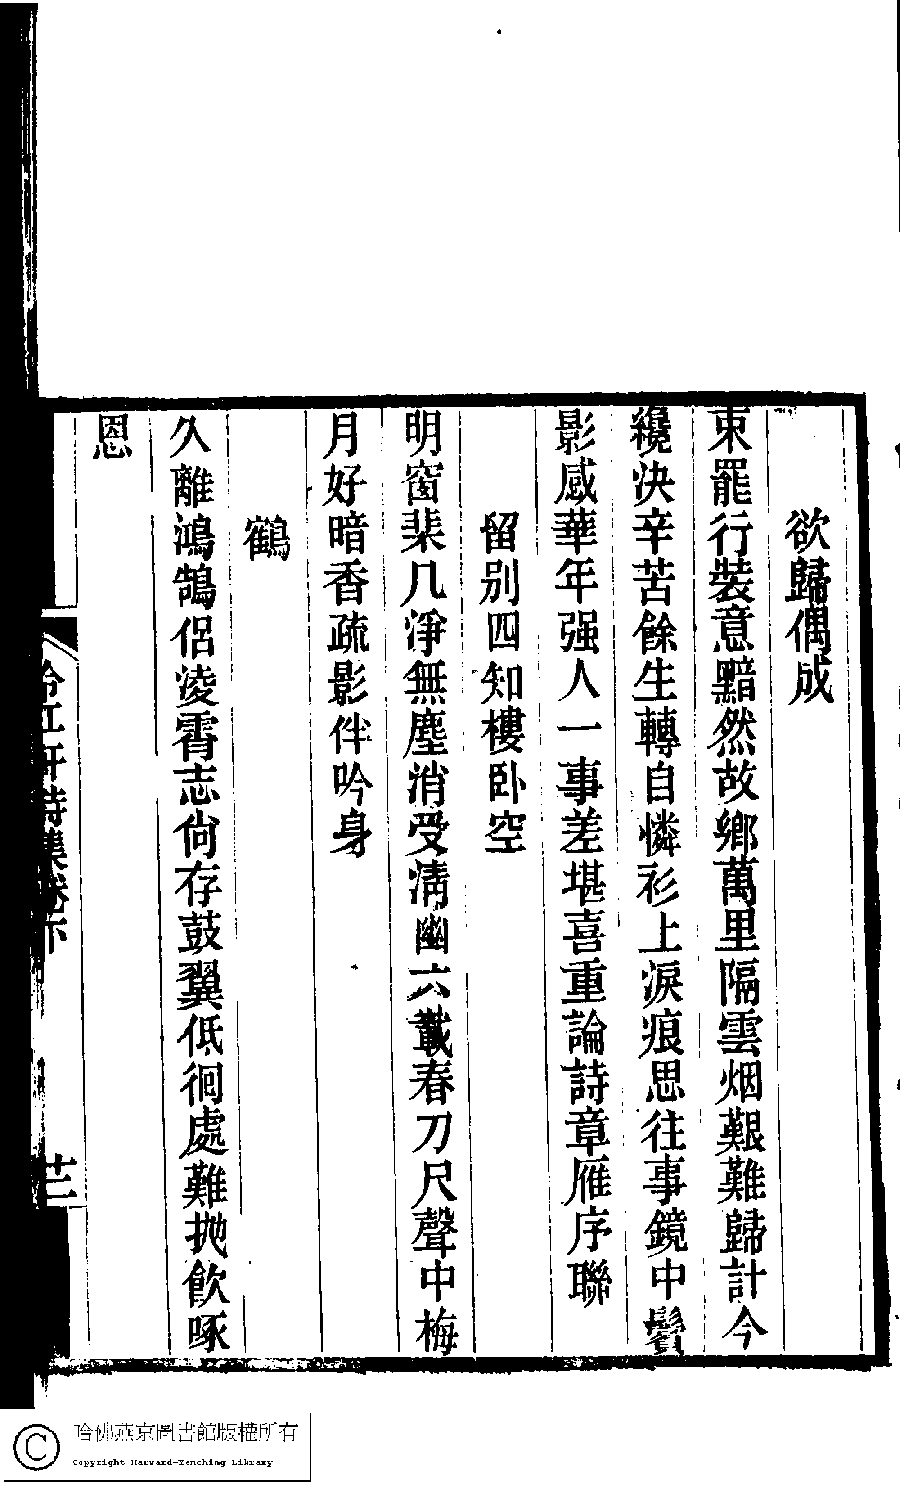 欲歸偶成
束罷行裝意黯然故鄉萬里隔雲烟艱難歸計今
纔决辛苦餘生轉自憐衫上淚痕思往事鏡中鬢
影感華年强人一事差堪喜重論詩章雁序聯
留别四知樓卧空
明窗棐几淨無塵消受清幽六載春刀尺聲中梅
月好暗香疏影伴吟身
鶴
久離鴻鵠侣淩霄志尙存鼓翼低徊處難抛飲啄
恩
冷紅軒詩集卷下
芒
哈佛燕京圖書館版權所有
Copyright Harvard-Yenching Library